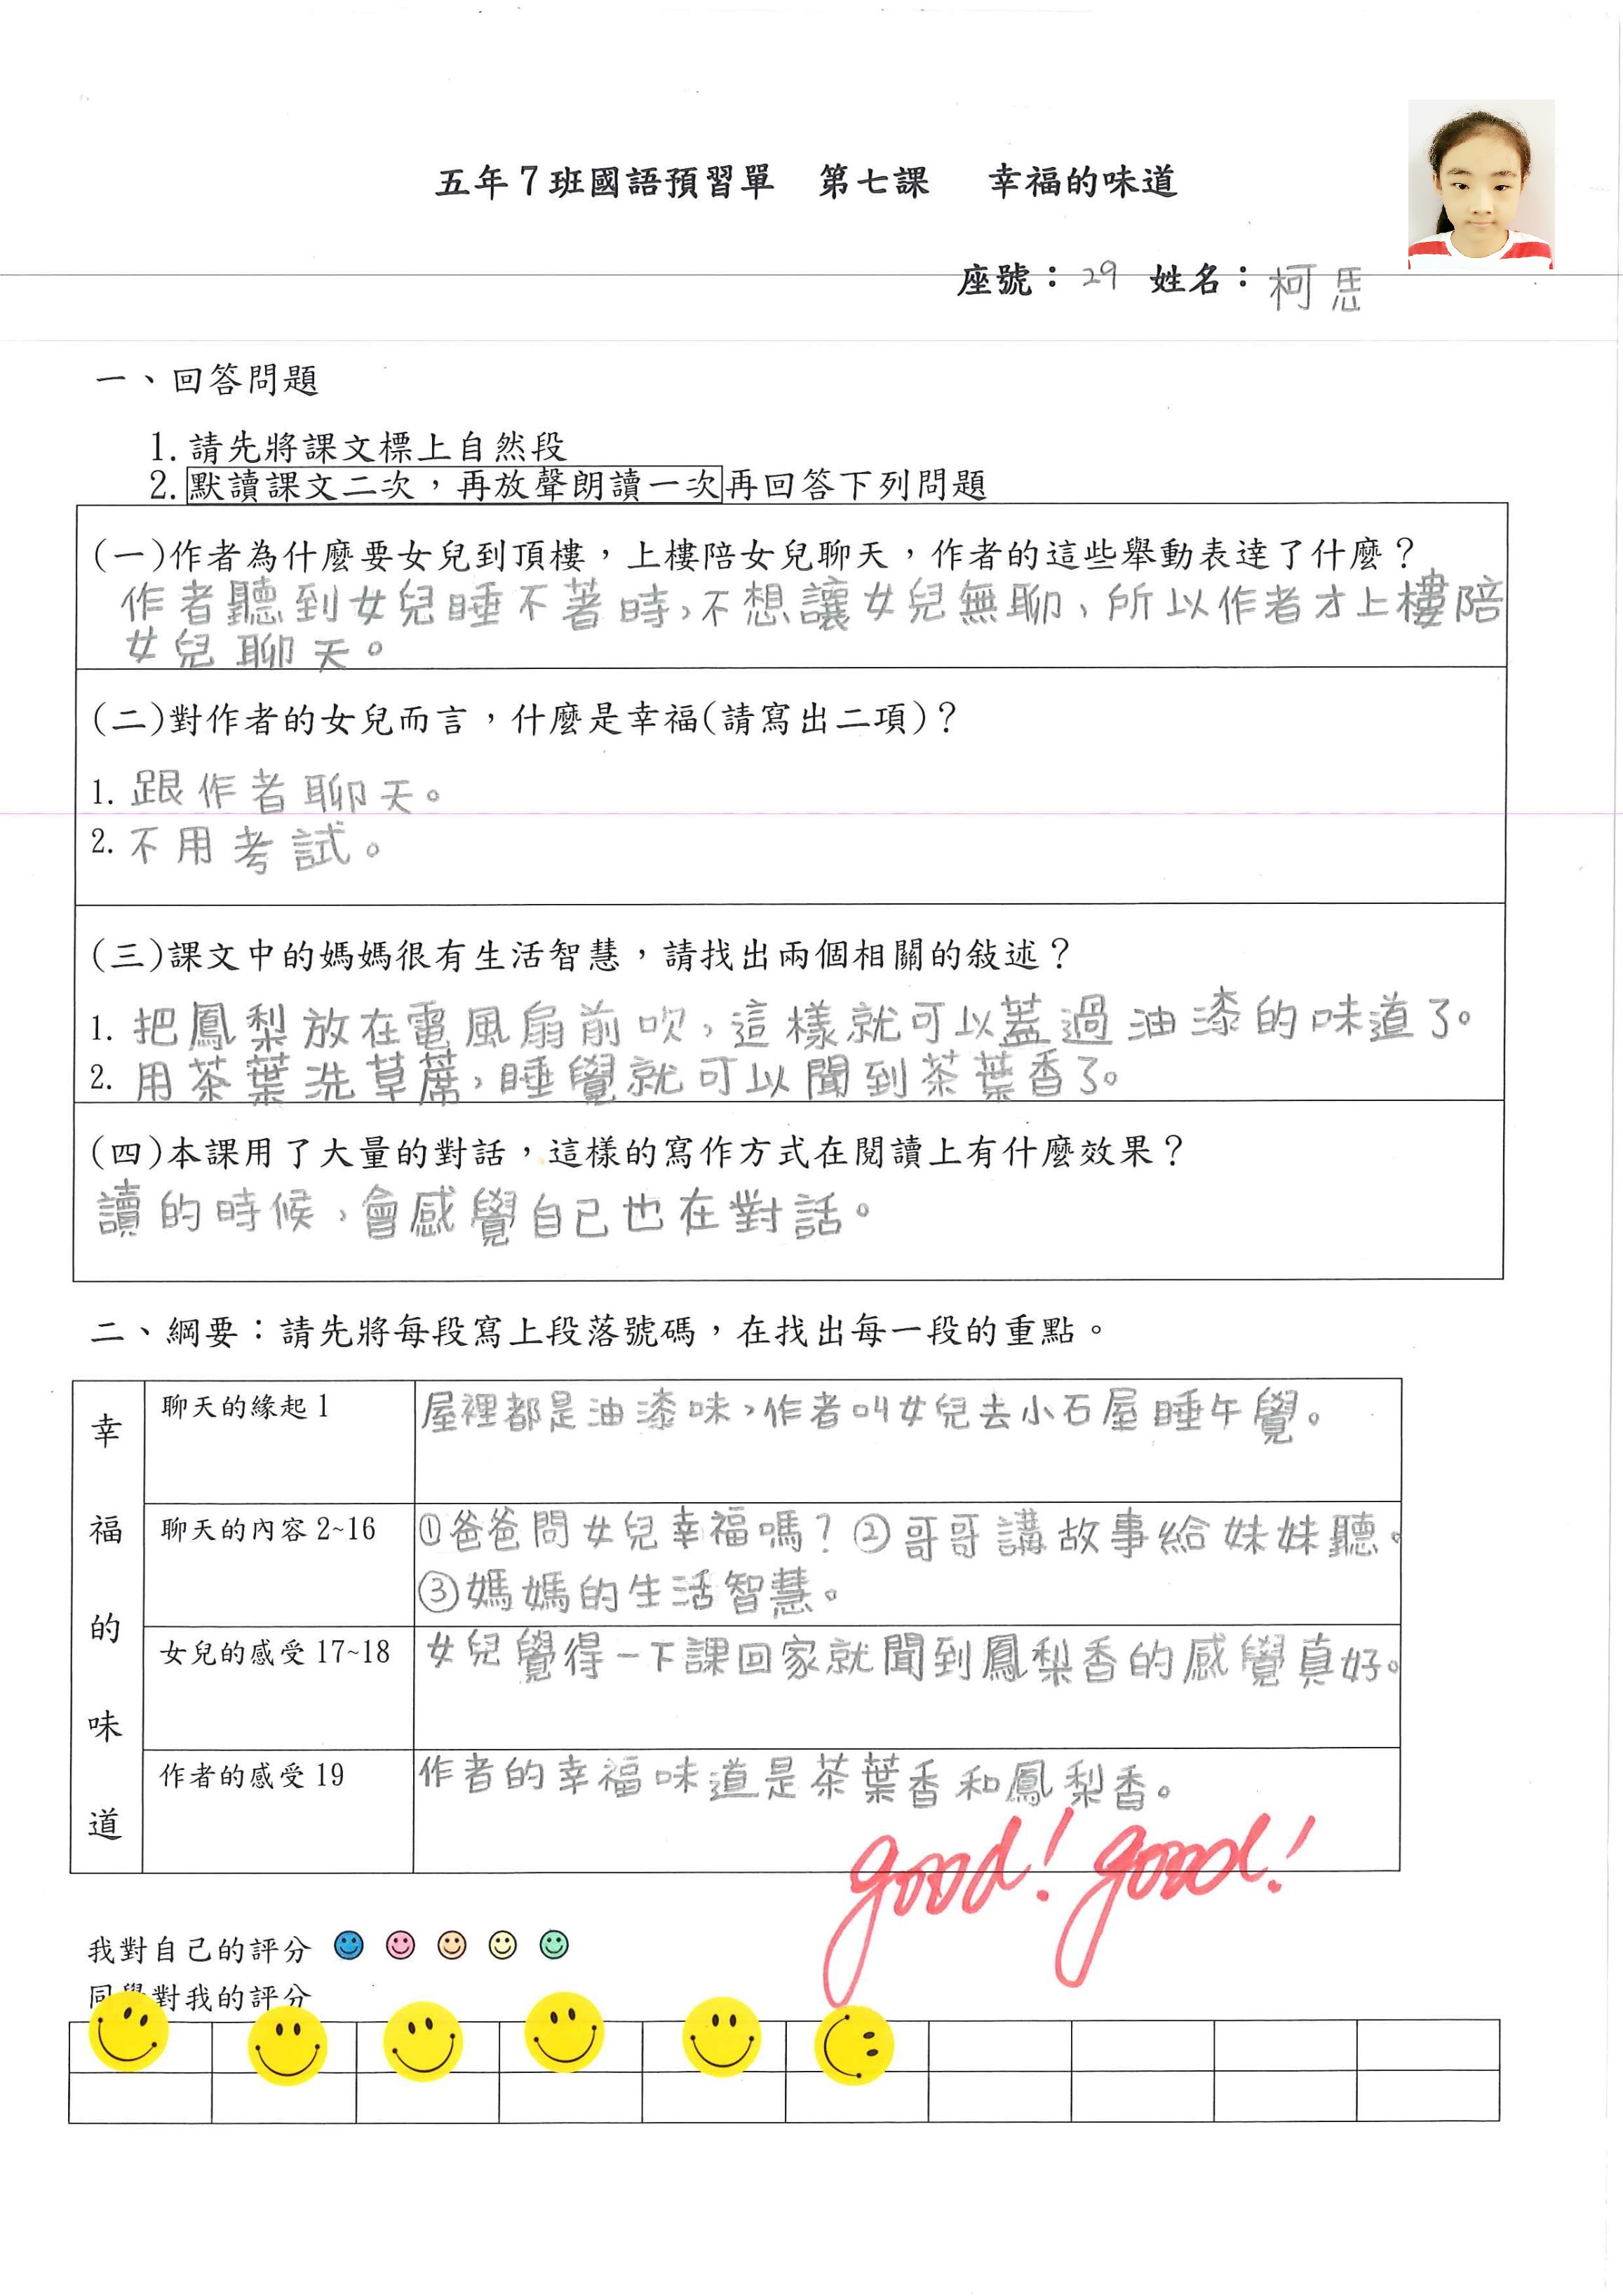 五年7班國語預習單　第七課　幸福的味道
座號：29 姓名：柯恁
一、回答問題
1.請先將課文標上自然段
2.默讀課文二次，再放聲朗讀一次再回答下列問題
(一)作者為什麼要女兒到頂樓，上樓陪女兒聊天，作者的這些舉動表達了什麼？
作者聽到女兒睡不著時，不想讓女兒無聊，所以作者才上樓陪
女兒聊天。
(二)對作者的女兒而言，什麼是幸福(請寫出二項)？
1.跟作者聊天。
2.不用考試。
(三)課文中的媽媽很有生活智慧，請找出兩個相關的敍述？
1.把鳳梨放在電風扇前吹，這樣就可以蓋過油漆的味道了。
2.用茶葉洗草蓆，睡覺就可以聞到茶葉香了。
(四)本課用了大量的對話，這樣的寫作方式在閱讀上有什麼效果？
讀的時候，會感覺自己也在對話。
二、綱要：請先將每段寫上段落號碼，在找出每一段的重點。
幸福的味道
聊天的緣起1
屋裡都是油漆味，作者叫女兒去小石屋睡午覺。
聊天的內容2~16
①爸爸問女兒幸福嗎？②哥哥講故事給妹妹聽。
③媽媽的生活智慧。
女兒的感受17~18
女兒覺得一下課回家就聞到鳳梨香的感覺真好。
作者的感受19
作者的幸福味道是茶葉香和鳳梨香。
good! good!
我對自己的評分
同學對我的評分